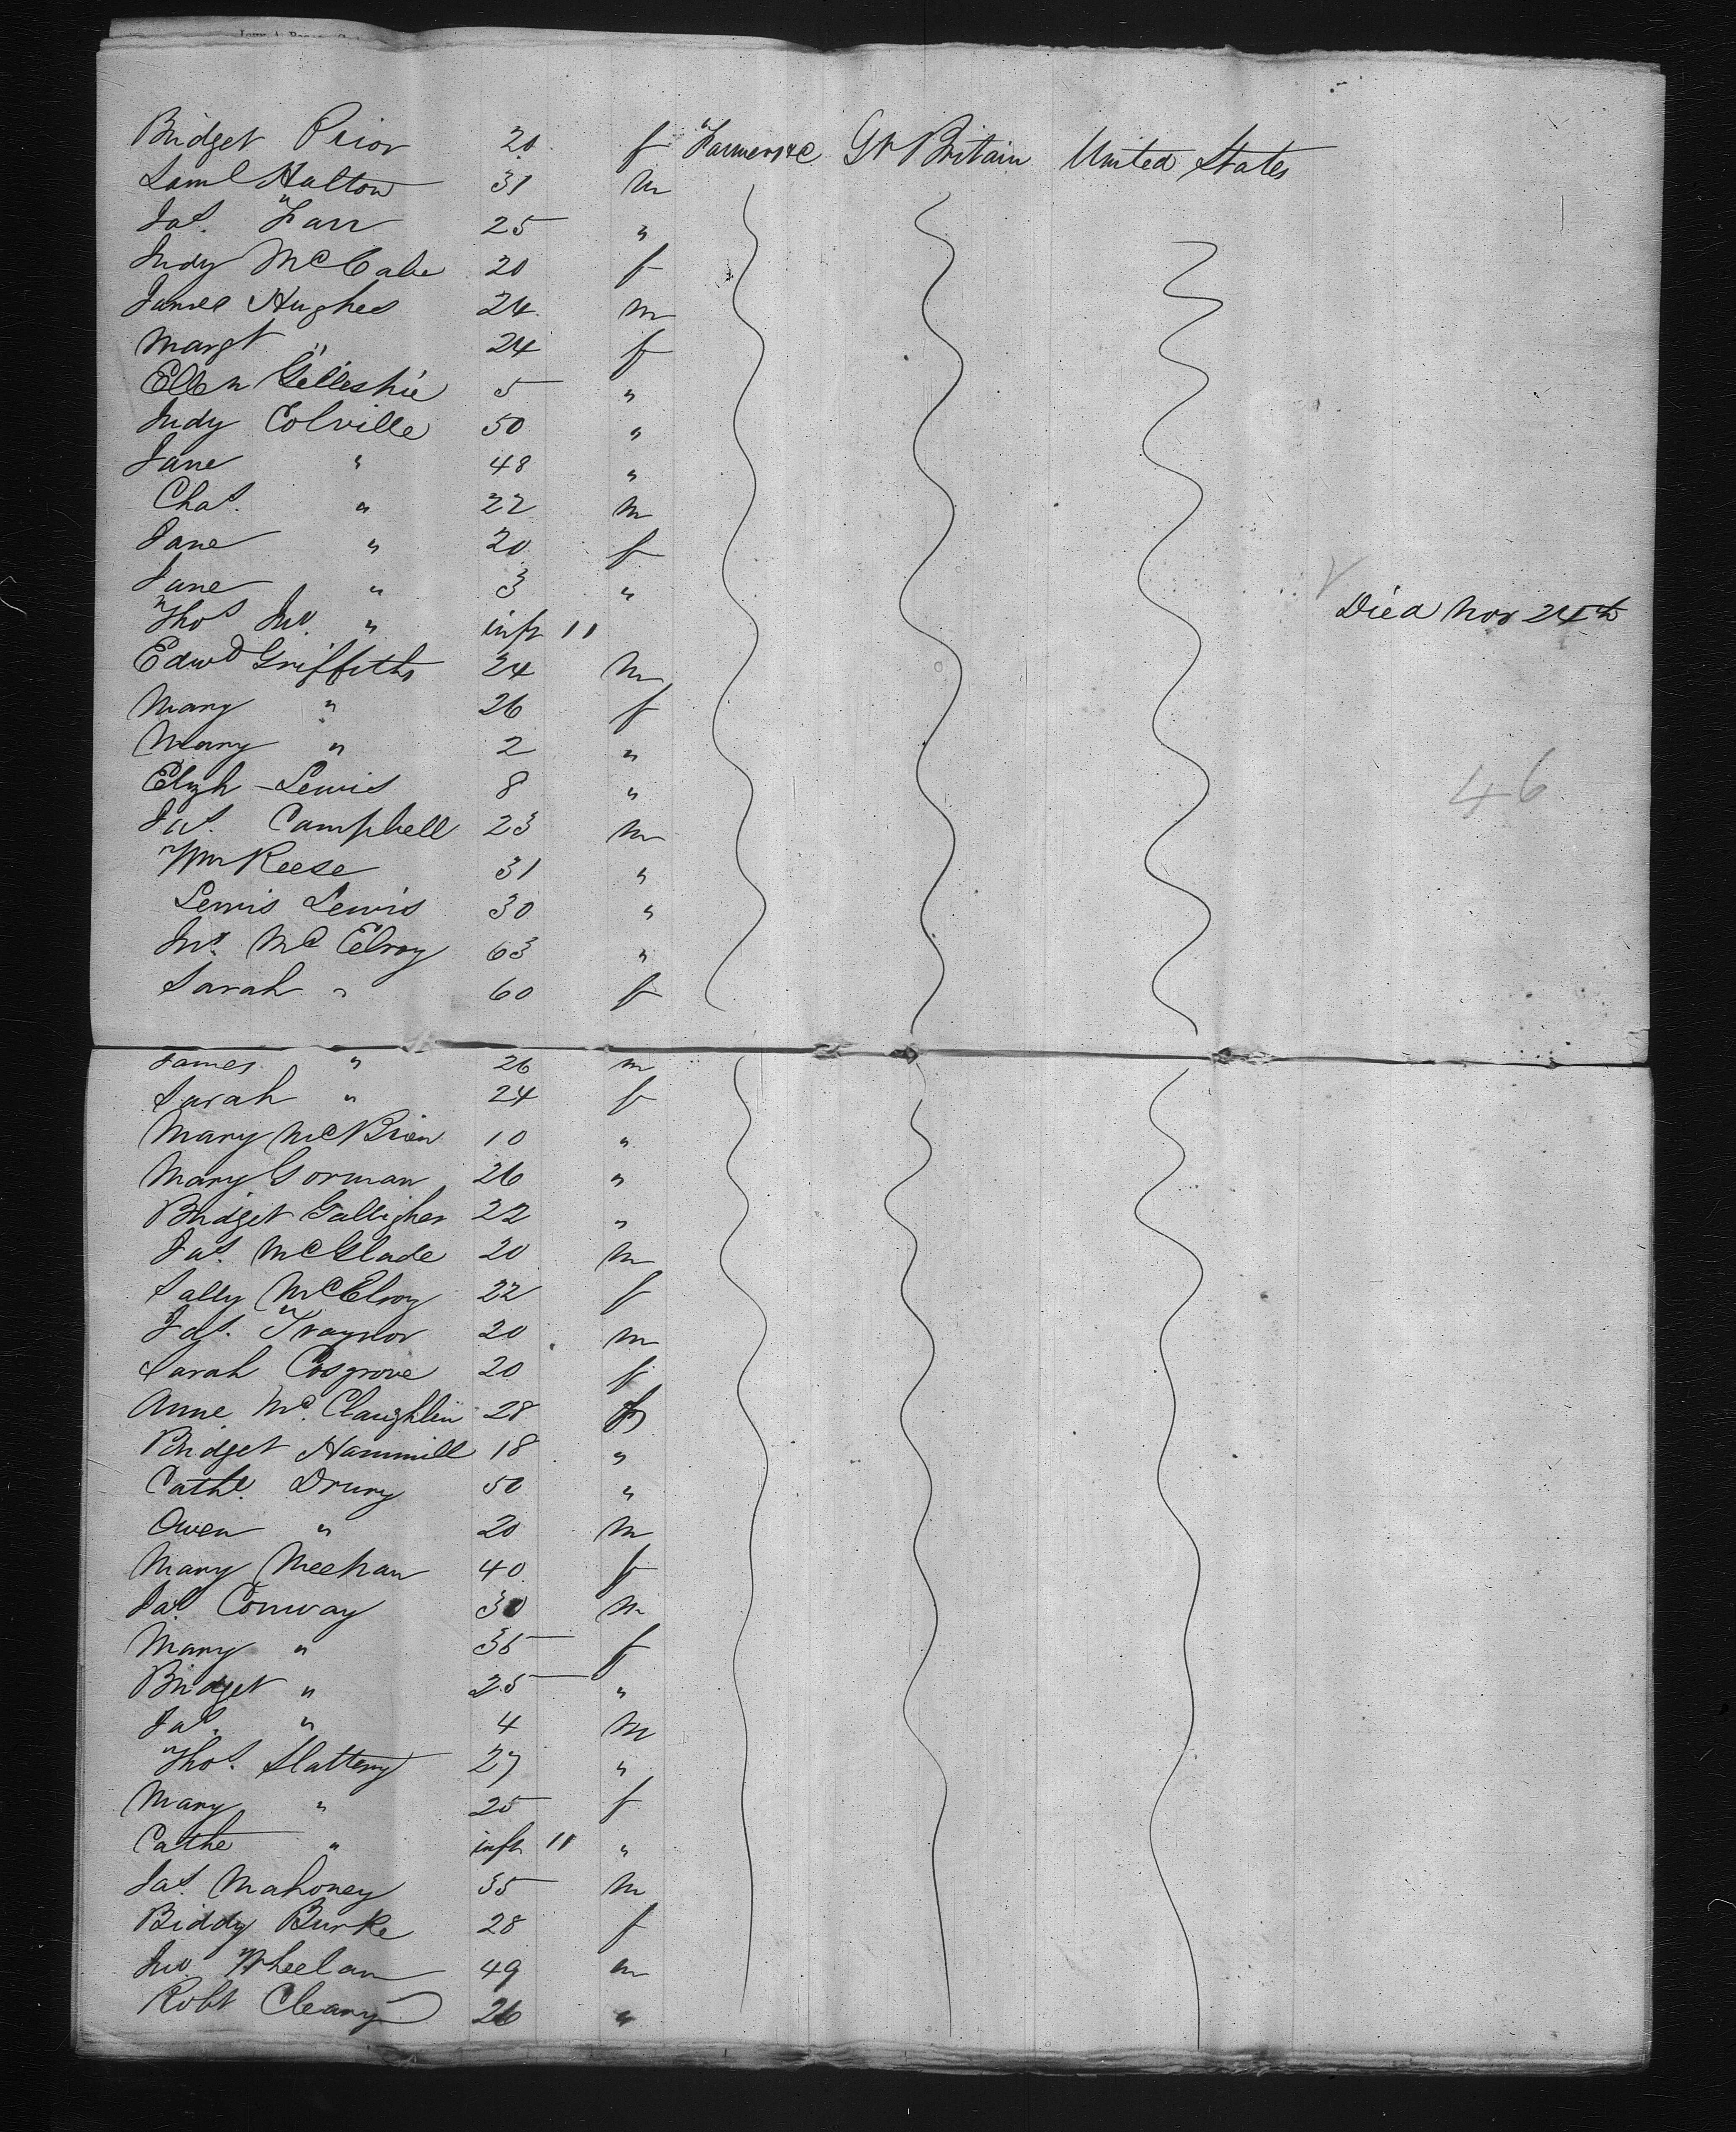 Bridget Prior 20 f Farmers &c Gt Britain United States
Saml Halton 31 m
Jas. Farr 25 "
Judy McCabe 20 f
James Hughes 24 m
Margt " 24 f
Ellen Gilleshie 5 "
Judy Colville 50 "
Jane " 48 "
Chas. " 22 m
Jane " 20 f
Jane " 3 "
Thos Jno. " inft 11 Died Nov 24th
Edwd Griffiths 24 m
Mary " 26 f
Mary " 2 "
Elizh Lewis 8 "
46
Jas. Campbell 23 m
Wm Reese 31 "
Lewis Lewis 30 "
Jno. McElroy 63 "
Sarah " 60 f
James " 26 m
Sarah " 24 f
Mary McBrien 10 "
Mary Gorman 26 "
Bridget Galligher 22 "
Jas. McGlade 20 m
Sally McElroy 22 f
Jas. Traynor 20 m
Sarah Cosgrove 20 f
Anne McClaughlin 28 f
Bridget Hammill 18 "
Cathe. Drury 50 "
Owen " 20 m
Mary Meehan 40 f
Jas. Conway 30 m
Mary " 35 f
Bridget " 25 "
Jas. " 4 m
Thos. Slattery 27 "
Mary " 25 f
Cathe " inft 11 "
Jas. Mahoney 35 m
Biddy Burke 28 f
Jno Wheelan 49 m
Robt Cleary 26 "